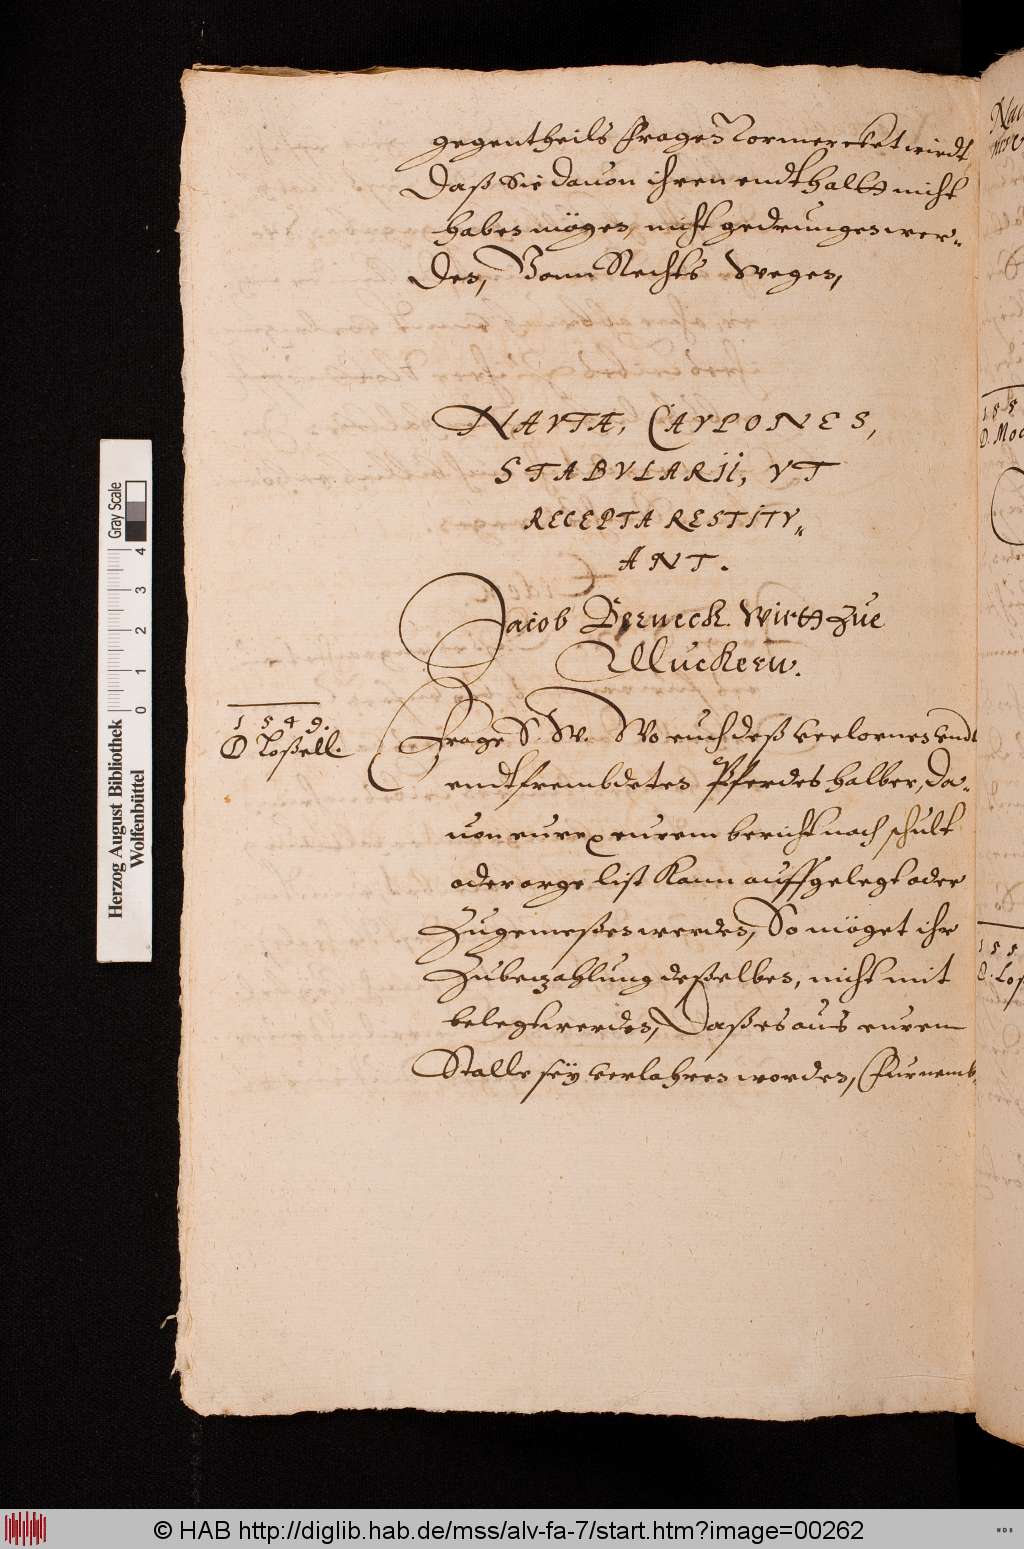 gegentheils Fragen Vormercket wirdt,
Daß Sie dauon ihren endthaltt nicht
haben mögen, nicht gedrungen wer„
den, Vonn Rechts wegen,
NAVTÆ, CAVPONES,
STABVLARII, VT
RECEPTA RESTITV„
ANT.
Jacob Berneck Wirtt zue
Muckern.
1549.
D Loßell.
Frage S. W. Wo euch deß verlornen vndt
endtfrembdeten Pferdes halber, da„
uon eurer eurem bericht nach schult
oder arge list kann auffgelegt oder
Zugemeßen werden, So möget ihr
Zubezahlung deßelben, nicht mit
belegt werden, Daß es aus eurem
Stalle seÿ verlohren worden, (furnemb„
155
D. Moc
155
D. Loß
Herzog August Bibliothek
Wolfenbüttel
0 1 2 3 4
Gray Scale
© HAB http://diglib.hab.de/mss/alv-fa-7/start.htm?image=00262